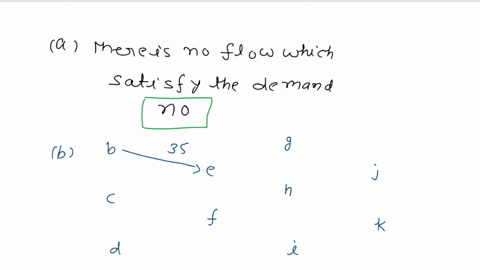 (a) There is no flow which
satisfy the demand
no
(b) b 35 g
e j
c h
f k
d i